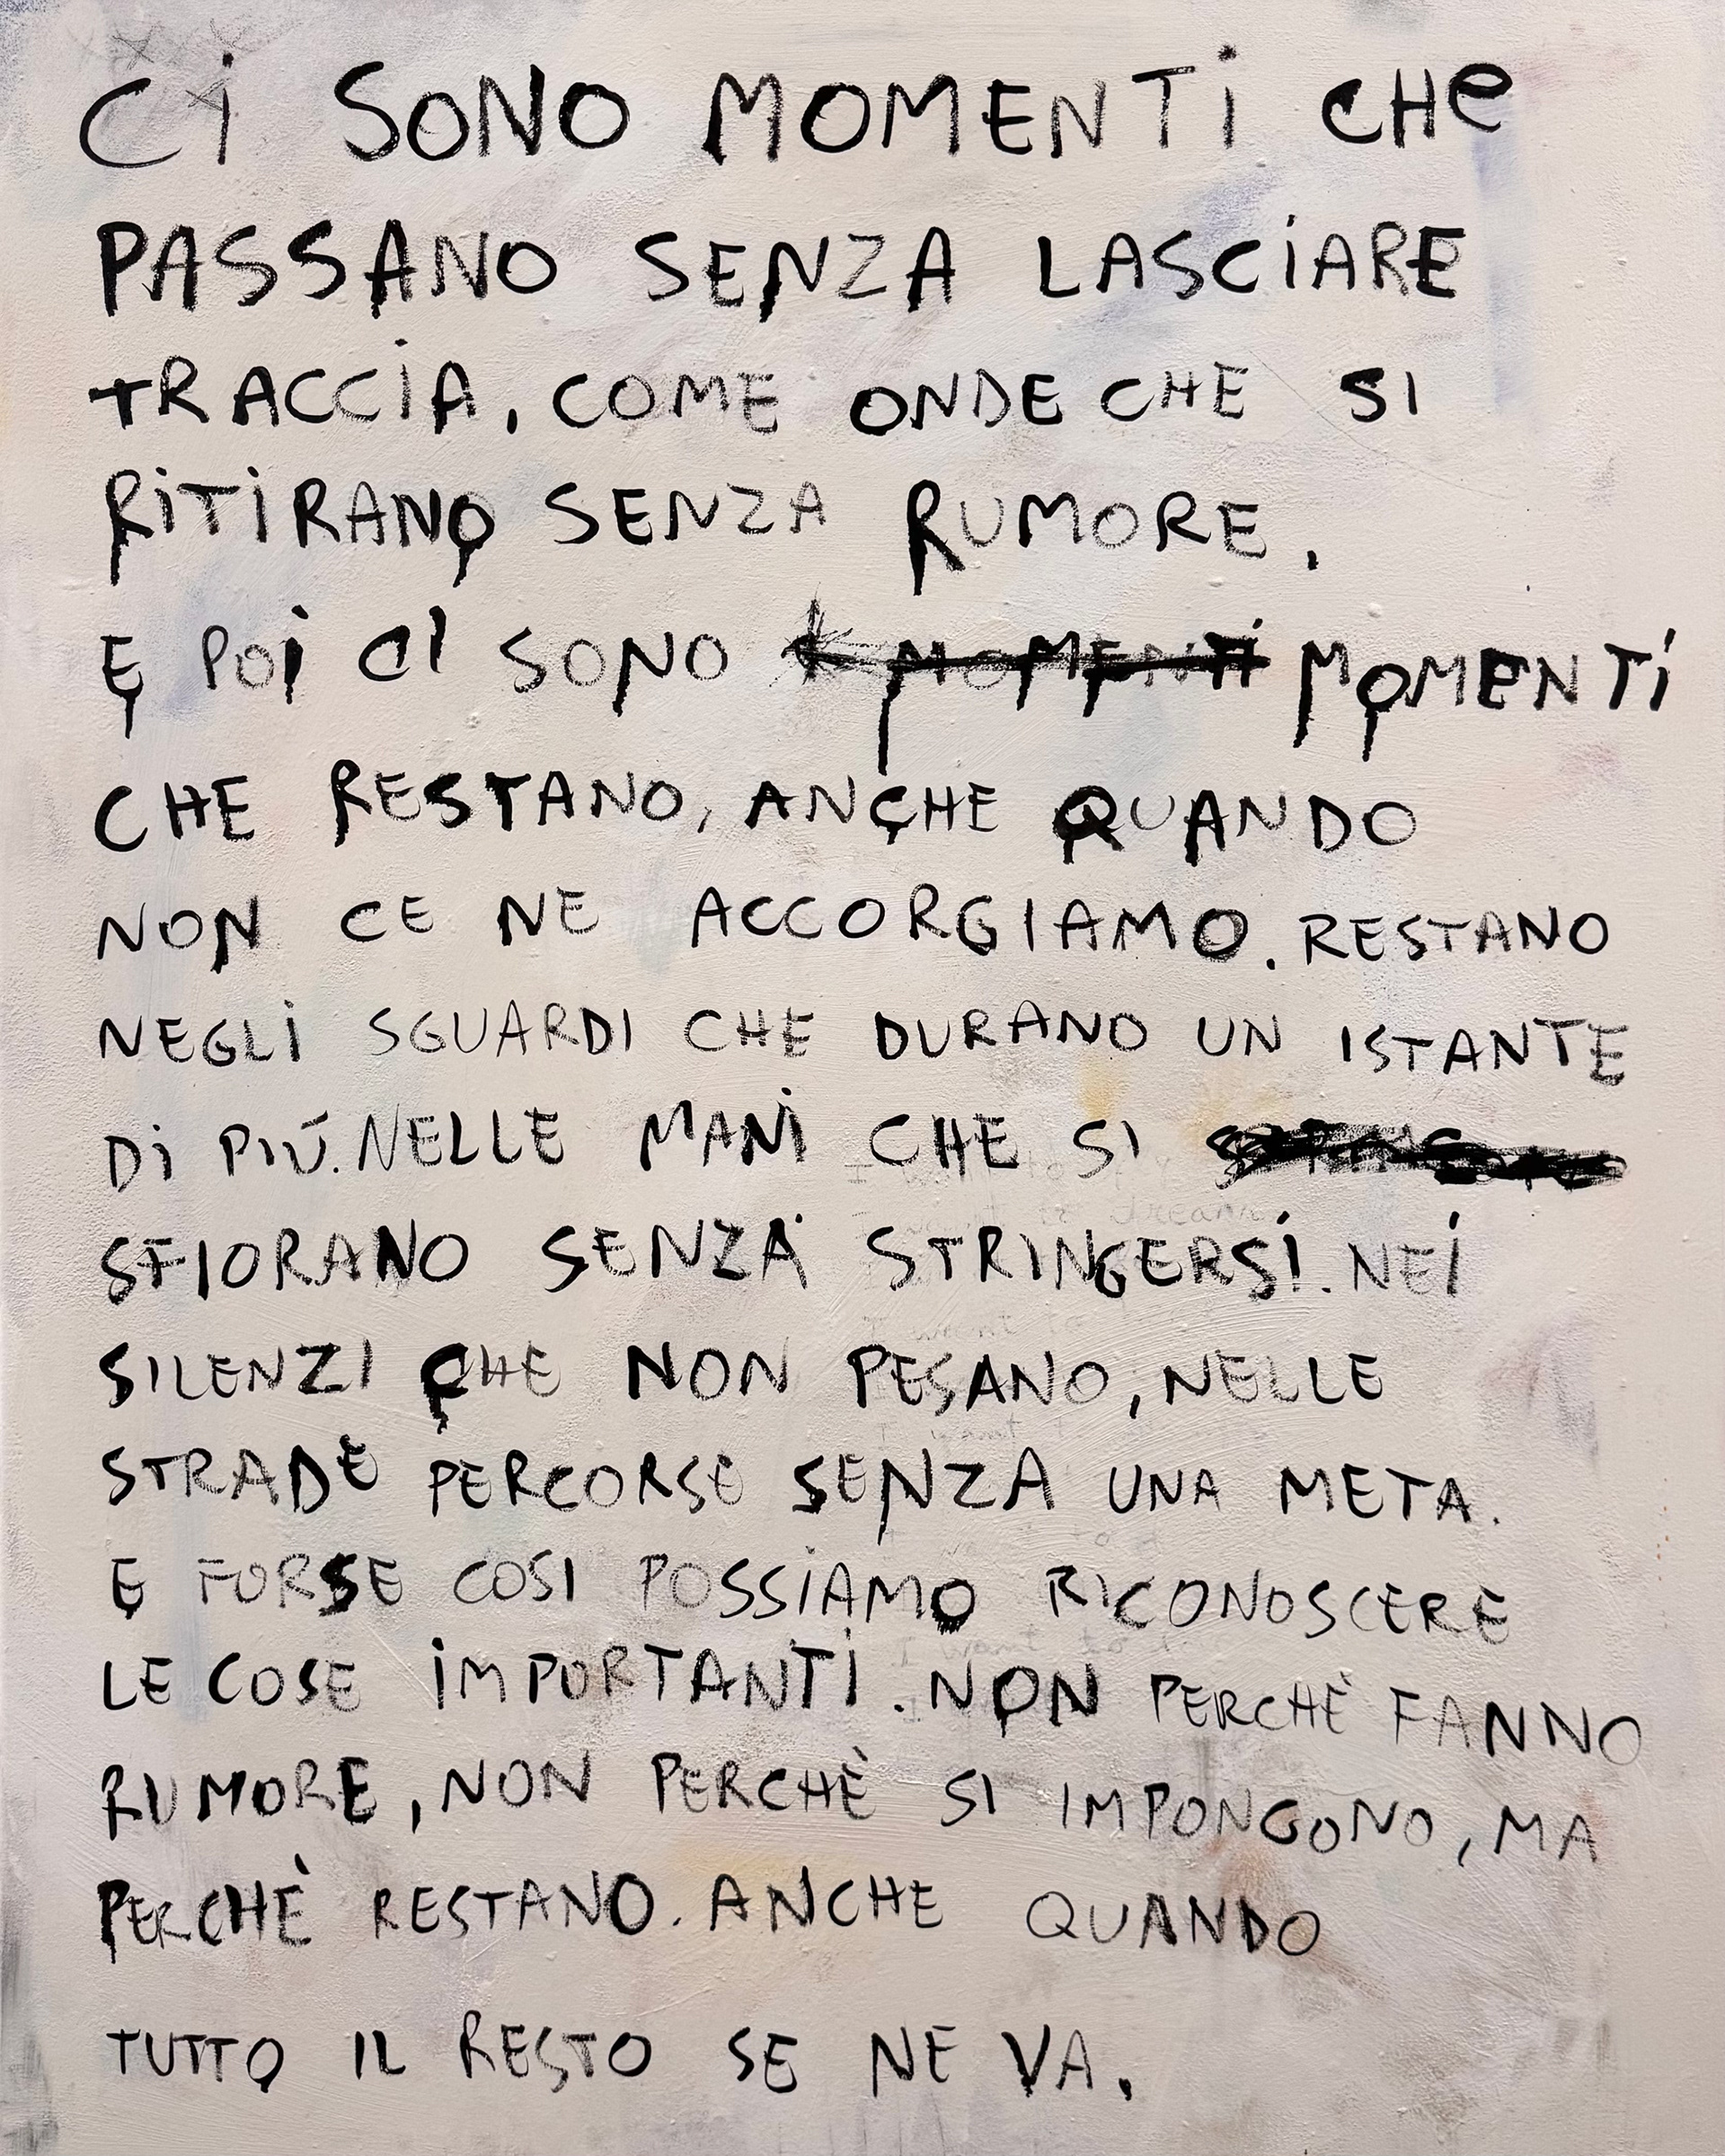 Ci SONO MOMENTi CHe
PASSANO SENZA LASCiARE
TRACCiA, COME ONDE CHE SI
RiTiRANO SENZA RUMORE,
E POi CI SONO MOMENTi MOMENTi
CHE RESTANO, ANCHE QUANDO
NON CE NE ACCORGIAMO. RESTANO
NEGLi SGUARDI CHE DURANO UN ISTANTE
Di PIÚ. NELLE MANi CHE SI
SFIORANO SENZA STRINGERSi. NEi
SILENZI CHE NON PESANO, NELLE
STRADE PERCORSE SENZA UNA META.
E FORSE COSI POSSiAMO RICONOSCERE
LE COSE iMPORTANTi. NON PERCHÈ FANNO
RUMORE, NON PERCHÈ SI IMPONGONO, MA
PERCHÈ RESTANO. ANCHE QUANDO
TUTTO IL RESTO SE NE VA.